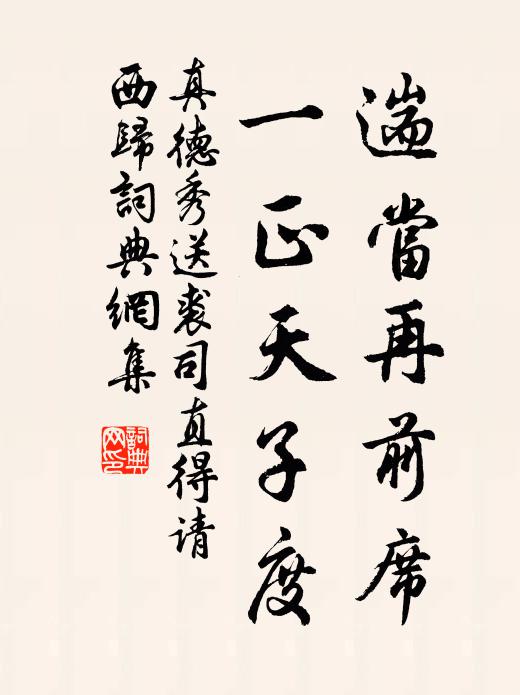 遄當再前席
一正天子度
真德秀送裘司直得请
西歸詞典網集
詞典網印